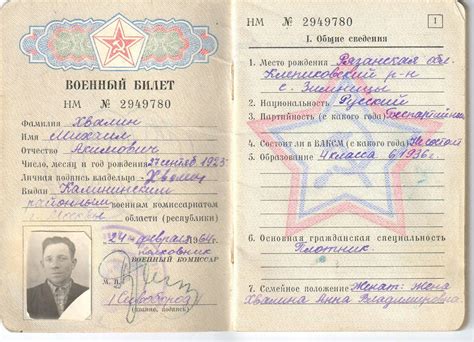 ВОЕННЫЙ БИЛЕТ
НМ № 2949780
Фамилия Хвалин
Имя Михаил
Отчество Акимович
Число, месяц и год рождения 27 сентяб 1923
Личная подпись владельца Хвалин
Выдан Калининским
районным военным комиссариатом
г. Москвы области (республики)
24 февраля 1964 г.
полковник
ВОЕННЫЙ КОМИССАР
М. П.
(звание, подпись)
НМ № 2949780
1
I. Общие сведения
1. Место рождения Рязанская обл.
Клепиковский р-н
с. Зименицы
2. Национальность Русский
3. Партийность (с какого года) беспартийный
4. Состоит ли в ВЛКСМ (с какого года) Не состоит
5. Образование 4 класса в 1936 г.
6. Основная гражданская специальность
Плотник.
7. Семейное положение Женат: жена
Хвалина Анна Владимировна